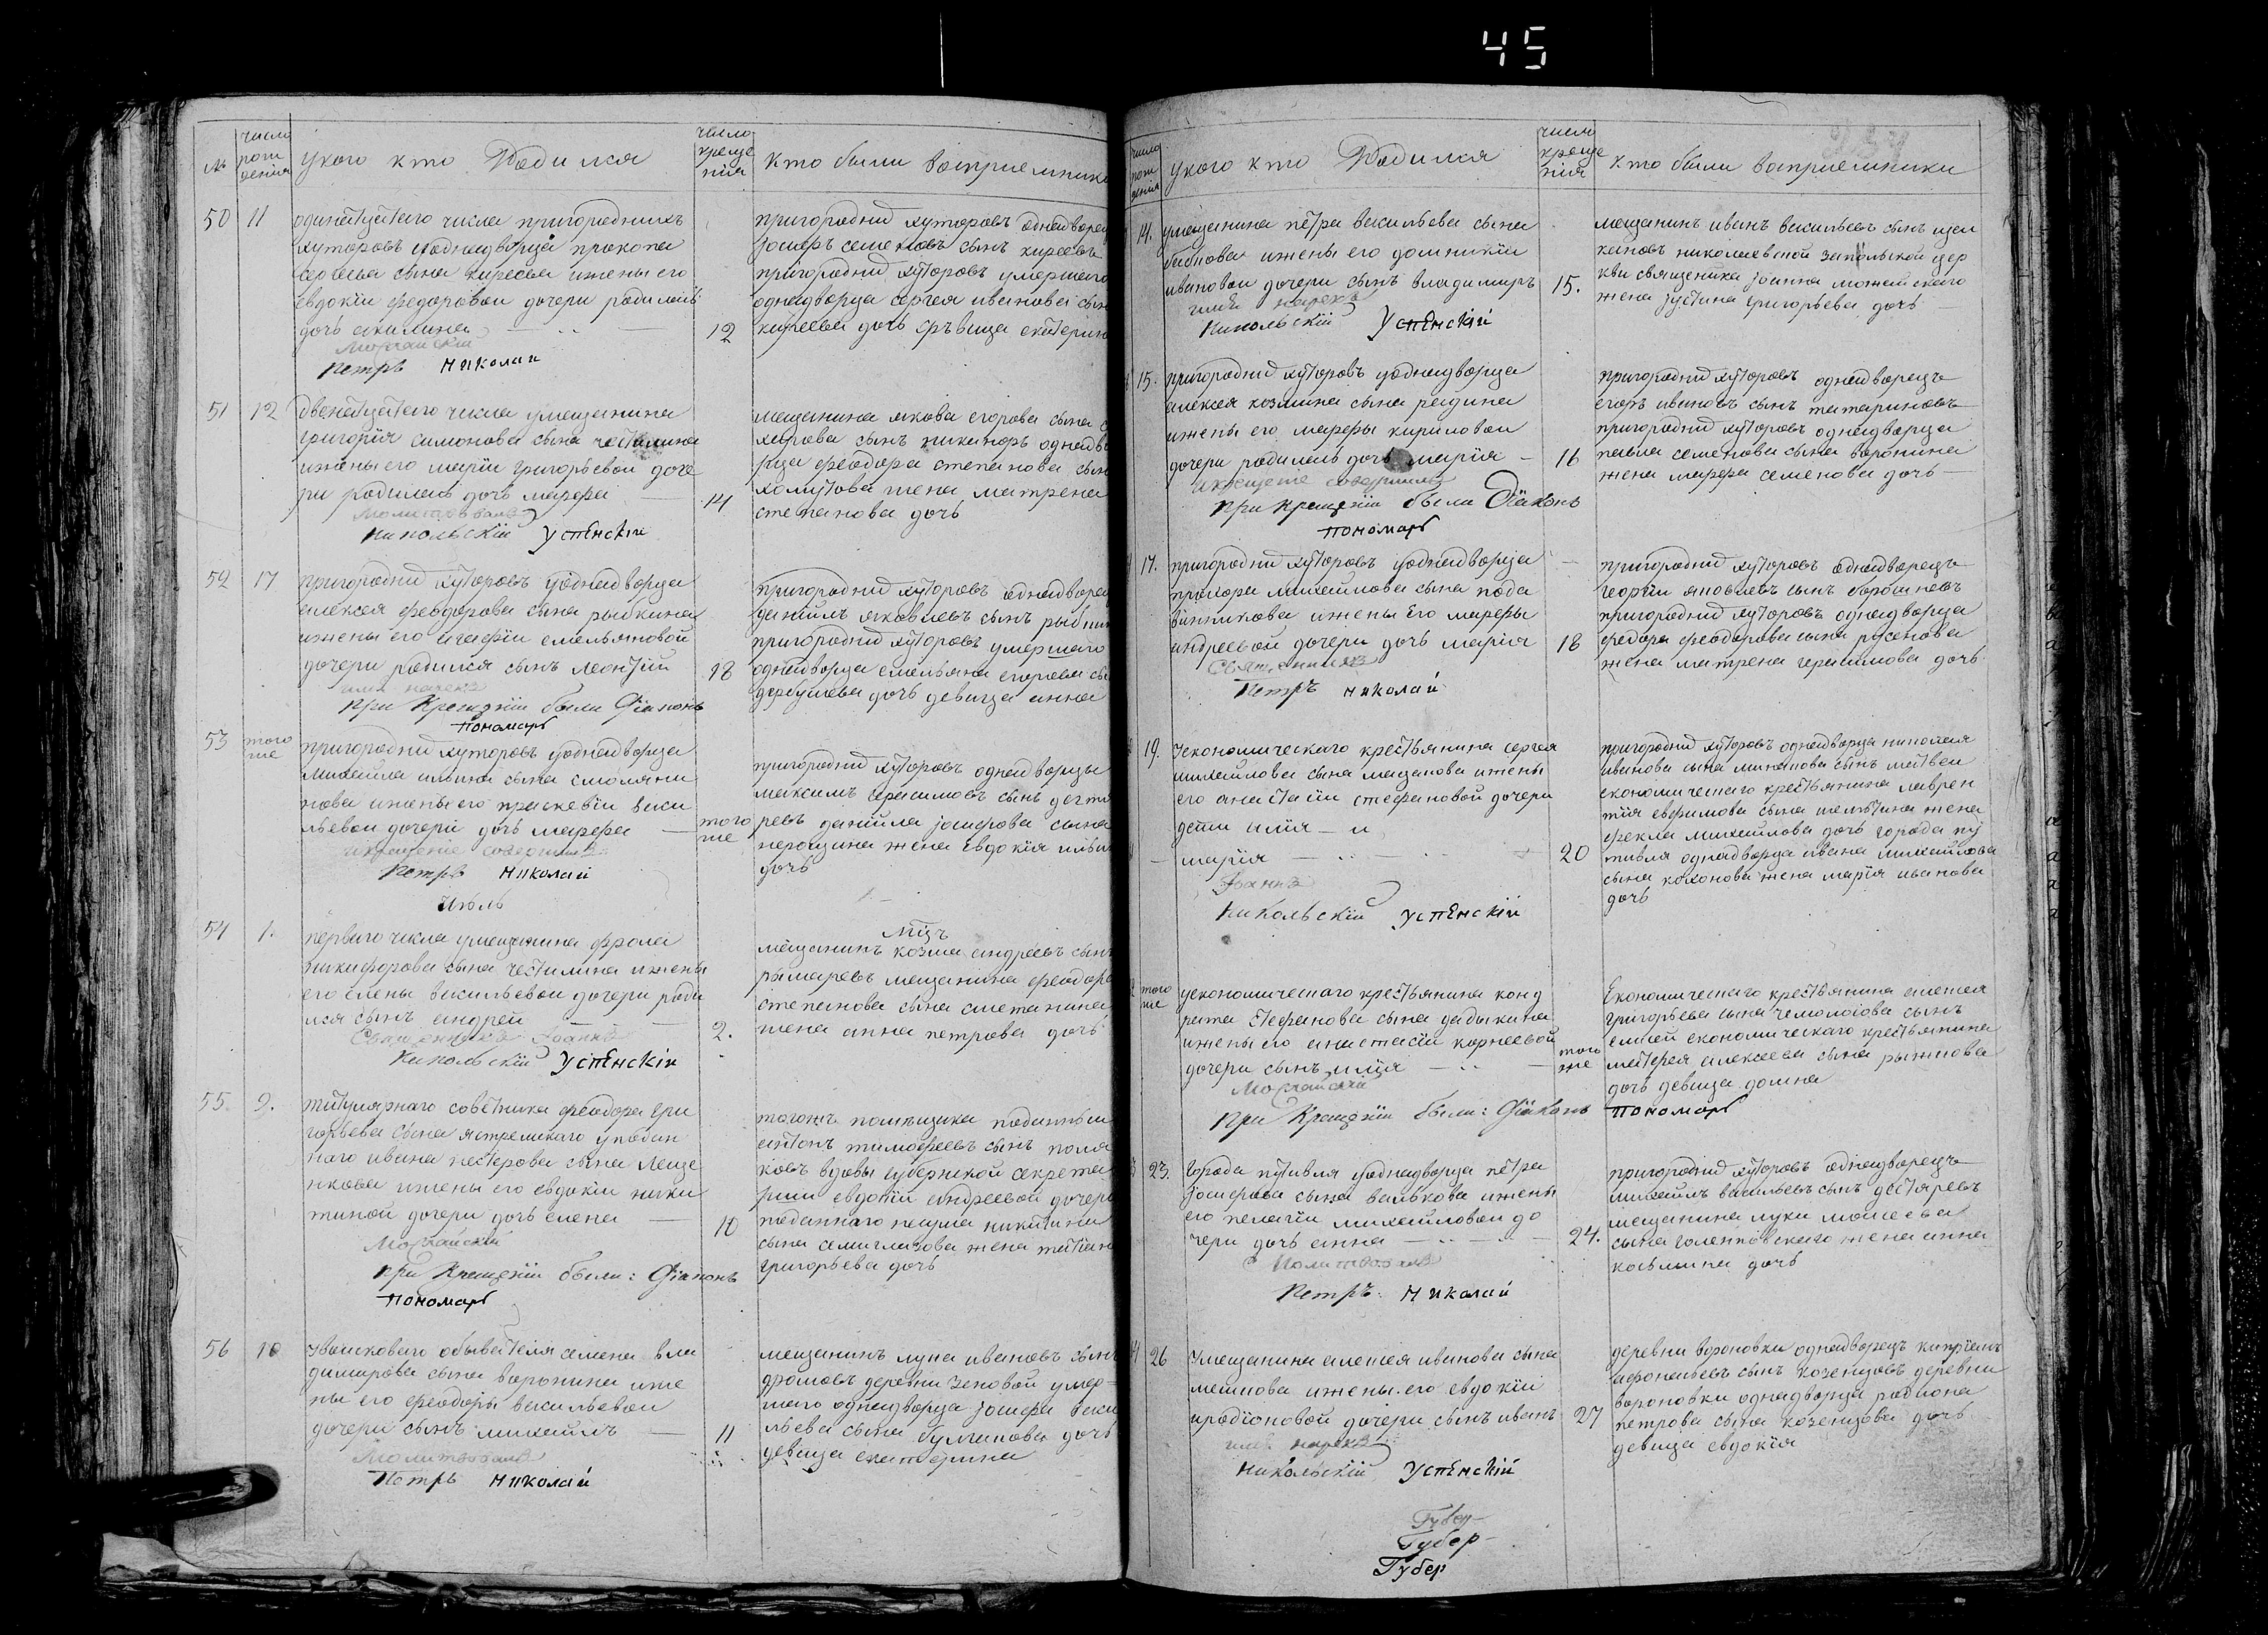 45
№
число рож дения
у кого кто Родился
число креще ния
кто были восприемники
50 11
одинатцатаго числа пригородныхъ
хуторовъ уоднадворца прокопа
сына киреева ижены его
евдокіи федоровои дочери родилась
дочь акилина
Можайскій
Петръ Николаи
12
пригородныхъ хуторовъ однадворецъ
іосифъ семеновъ сынъ киреевъ
пригородныхъ хуторовъ умершаго
однадворца сергея иванова сына
киреева дочь девица екатерина
51 12
двенатцатаго числа умещанина
григорія симонова сына честалина
ижены его маріи григорьевои доче
ри родилась дочь марфа
Молитвовалъ
Никольскій Успенскіи
14
мещанина якова егорова сына
сынъ никаноръ однадво
рца феодора степанова сына
холутова жена матрена
степанова дочь
52 17
пригородныхъ хуторовъ уоднадворца
алексея феодорова сына рыбкина
ижены его агафіи емельяновой
дочери родился сынъ леонтій
имя нарекъ
при Крещеніи были Діаконъ
Пономарь
18
пригородныхъ хуторовъ однадворецъ
даніилъ яковлевъ сынъ рыбкин
пригородныхъ хуторовъ умершаго
однадворца емельяна егорова сы
дочь девица анна
53 того же
пригородныхъ хуторовъ уоднадворца
михаила ильина сына смоляни
нова ижены его праскевіи васи
льевои дочери дочь марфа
икрещеніе совершилъ
Петръ Николаи
того же
пригородныхъ хуторовъ однадворцы
максимъ герасимовъ сынъ дегтя
ревъ даніила іосифова сына
жена Евдокія ильина
дочь
Июль
мцъ
54 1.
перваго числа умещанина фрола
никифорова сына честилина ижены
его елены васильевои дочери роди
лся сынъ андреи
Священникъ Іоаннъ
Никольскій Успенскіи
2.
мещанинъ козма андреевъ сынъ
рымаревъ мещанина феодора
степанова сына сметанина
жена анна петрова дочь
55 9.
титулярнаго советника феодора гри
горьева сына ястремскаго уподан
наго ивана нестерова сына леще
нкова ижены его евдокіи ники
тиной дочери дочь елена
Можайскій
при Крещеніи были: Діаконъ
Пономарь
10
тогожъ помещика подданныи
антонъ тимофеевъ сынъ поля
ковъ вдовы губернской секрета
рши евдокіи андреевой дочери
поданнаго наума никитина
сына семиглазова жена татіана
григорьева дочь
56 10
увоисковаго обывателя семена вла
димирова сына воронина иже
ны его феодоры васильевои
дочери сынъ михаилъ
Молитвовалъ
Петръ Николаи
11
мещанинъ лука ивановъ сынъ
деревни зеновои умер
шаго однадворца іосифа васи
льева сына булгакова дочь
девица екатерина
число рож дения
у кого кто Родился
число креще ния
кто были восприемники
14.
умещанина петра васильева сына
бабкова ижены его домникіи
ивановои дочери сынъ владимиръ
имя нарекъ
Никольскіи Успенскіи
15.
мещанинъ иванъ васильевъ сынъ
николаевской запольской цер
кви священика іоанна можайскаго
жена іустина григорьева дочь
15.
пригородныхъ хуторовъ уоднадворца
алексея козмина сына редина
ижены его марфы кириловои
дочери родилась дочь марія
икрещеніе совершилъ
при Крещеніи были Діаконъ
пономарь
16
пригородныхъ хуторовъ однадворецъ
егоръ ивановъ сынъ татариновъ
пригородныхъ хуторовъ однадворца
павла семенова сына воронина
жена марфа семенова дочь
17.
пригородныхъ хуторовъ уоднадворца
прохора михаилова сына подо
винникова ижены его марфы
андреевой дочери дочь марія
Священникъ
Петръ Николаи
18
пригородныхъ хуторовъ однадворецъ
георгіи яковлевъ сынъ
пригородныхъ хуторовъ однадворца
федора феодорова сына русанова
жена матрена герасимова дочь
19.
уекономическаго крестьянина сергея
михаилова сына ижены
его анастасіи стефановой дочери
дети илія и
марія
Іоаннъ
Никольскіи Успенскіи
20
пригородныхъ хуторовъ однадворца николая
иванова сына минакова сынъ матвеи
економическаго крестьянина лаврен
тія евфимова сына жена
фекла михаилова дочь города пу
тивля однадворца ивана михаилова
сына кохонова жена марія иванова
дочь
того же
уекономическаго крестьянина конд
рата стефанова сына
ижены его анастасіи корнеевой
дочери сынъ илія
Можайскій
при Крещеніи были: Діаконъ
пономарь
того же
Економическаго крестьянина алексея
григорьева сына сынъ
економическаго крестьянина
матфея алексеева сына рыжкова
дочь девица домна
23.
города путивля уоднадворца петра
іосифова сына волькова ижены
его пелагіи михаиловои до
чери дочь анна
Молитвовалъ
Петръ Николаи
24.
пригородныхъ хуторовъ однадворецъ
михаилъ васильевъ сынъ дегтяревъ
мещанина луки моисеева
сына голенковскаго жена анна
козьмина дочь
26
умещанина алексея иванова сына
мешкова ижены его евдокіи
иродіоновой дочери сынъ иванъ
имя нарекъ
Никольскій Успенскій
27
деревни вороновки однадворецъ кипріанъ
афонасьевъ сынъ козенцовъ деревни
вороновки однадворца родиона
петрова сына козенцова дочь
девица евдокія
Губер
Губер
Губер